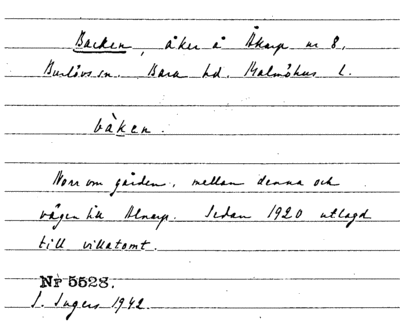 Backen, åker å Åkarp nr 8.
Burlövs sn. Bara hd. Malmöhus l.
bàken.
Norr om gården, mellan denna och
vägen till Alnarp. Sedan 1920 utlagd
till villatomt.
Nr 5528.
I. Ingers 1942.